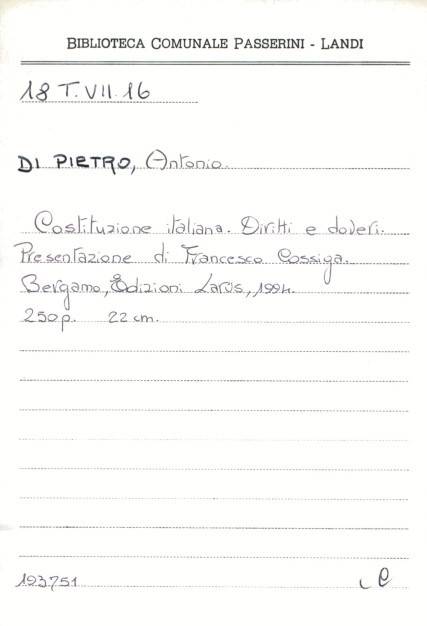 BIBLIOTECA COMUNALE PASSERINI - LANDI
18 T. VII. 16
DI PIETRO, Antonio.
Costituzione italiana. Diritti e doveri.
Presentazione di Francesco Cossiga.
Bergamo, Edizioni Larus, 1994.
250 p. 22 cm.
193751